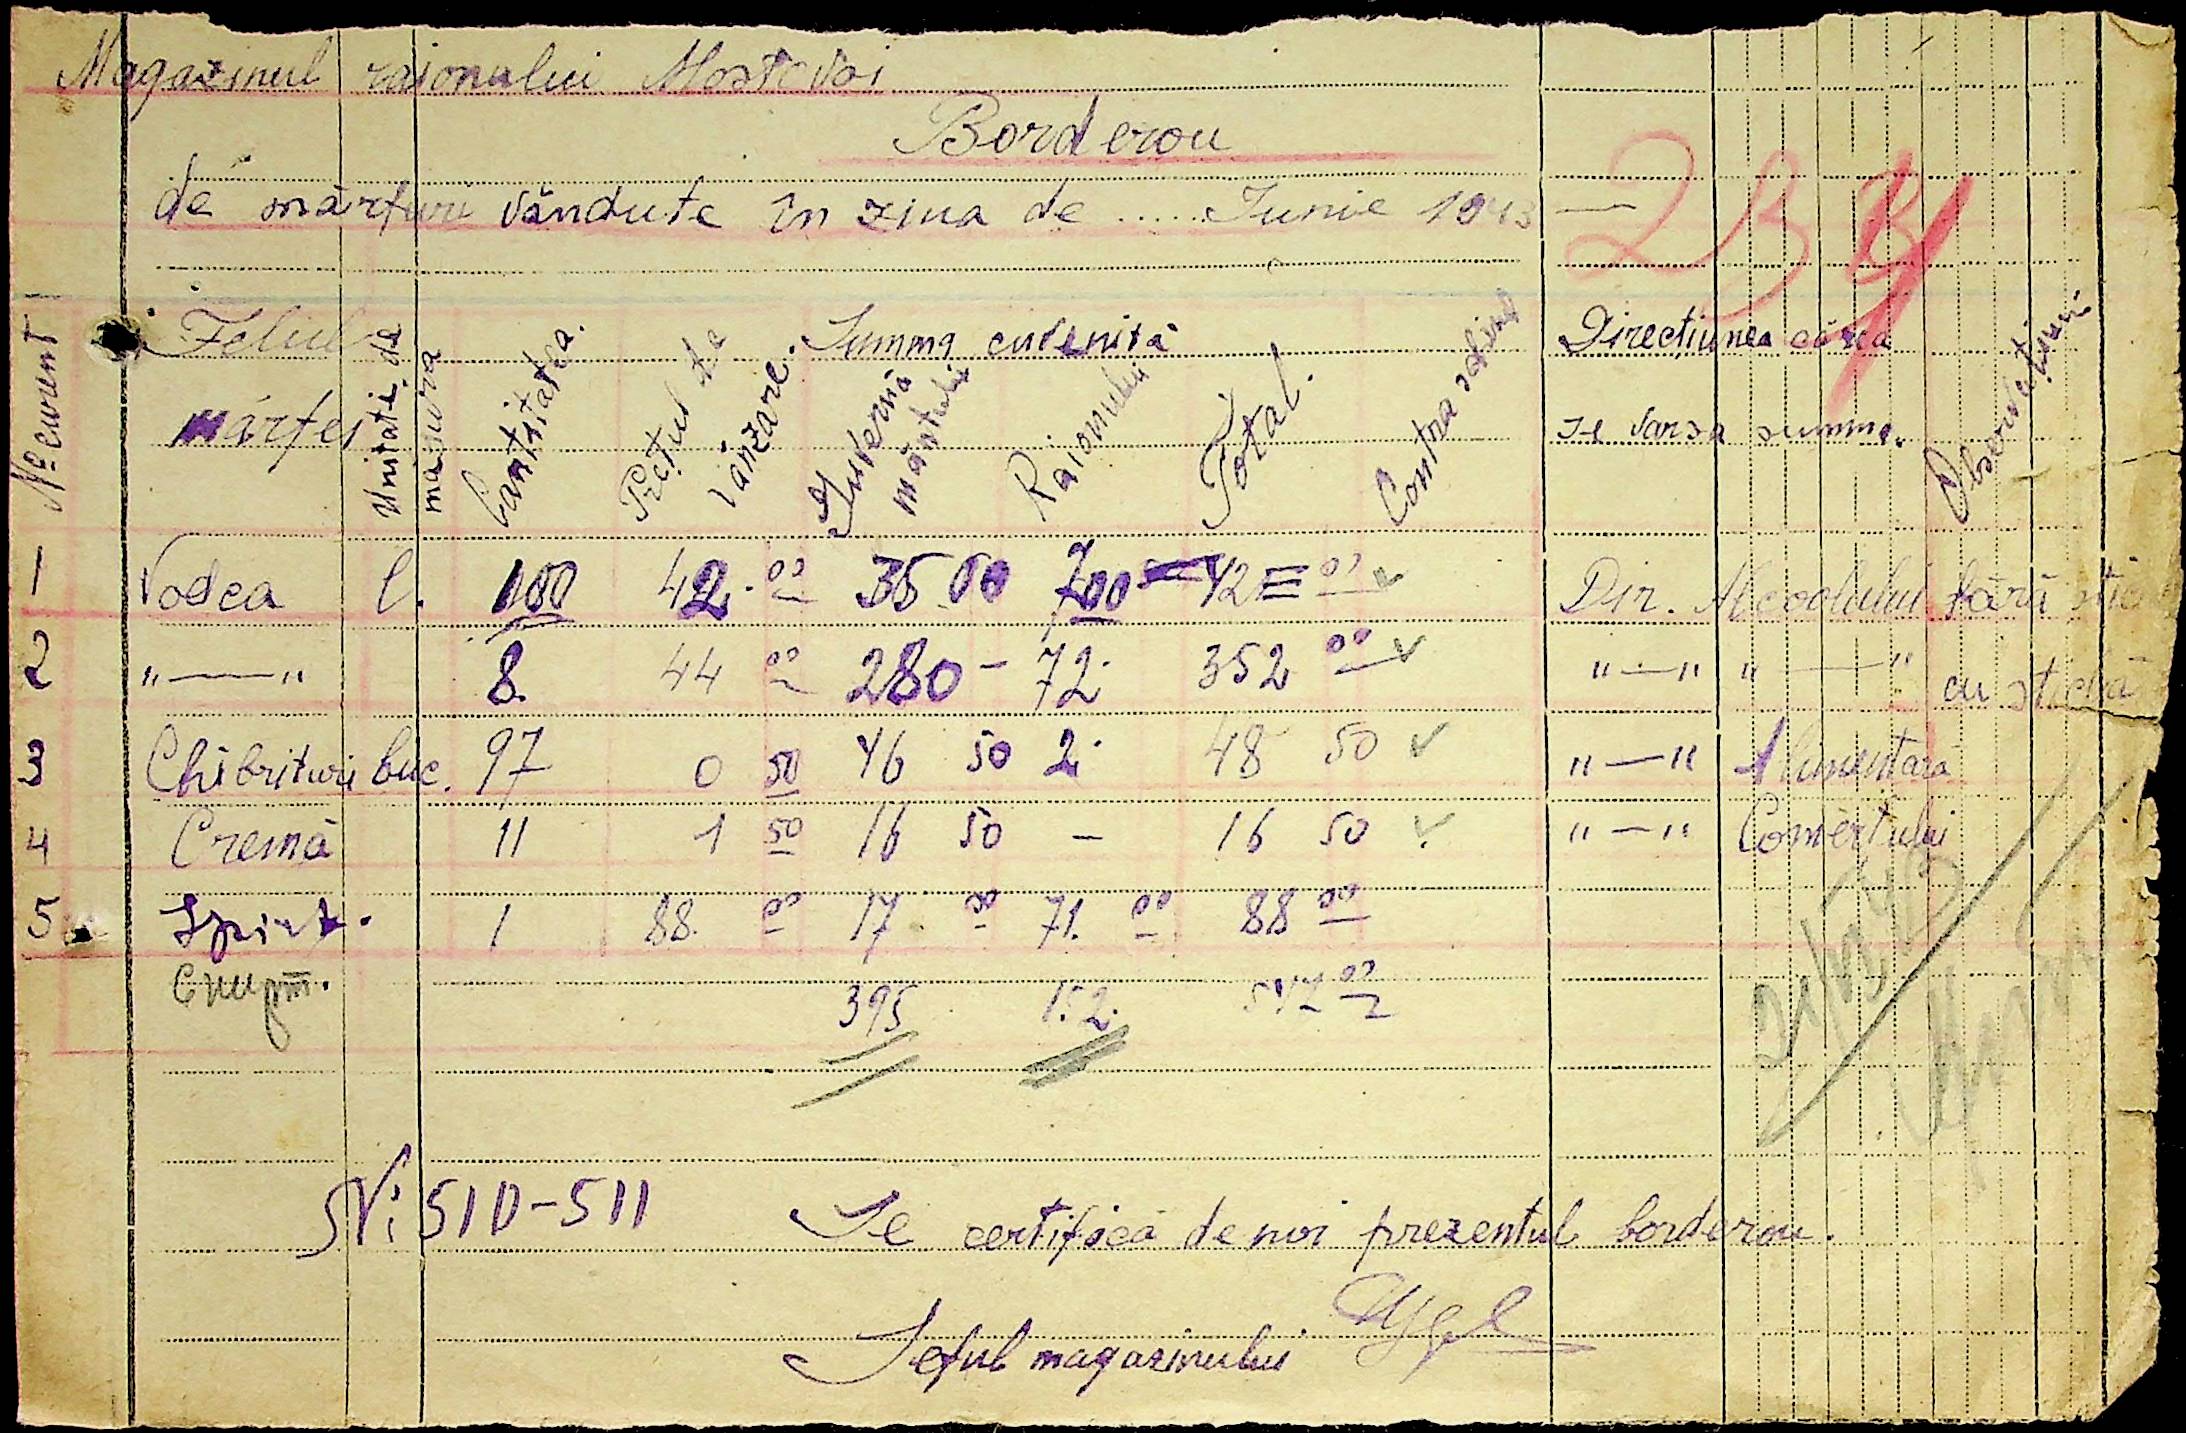 Magazinul raionului Mostovoi
Borderou
de mărfuri vândute în ziua de ..... Iunie 1943 —
Nº curent
Felul mărfei
Unitate de masura
Cantitatea.
Prețul de vânzare.
Summa cuvenită
Guvernămăntului
Raionului
Total.
Contra
Direcțiunea cărea
se varsa summa.
Observațiuni
1 Vodca l. 100 42.00 3500 700 42 00 Dir. Alcoolului fără
2 "—" 8. 44 00 280 - 72. 352 00 "—" "—" cu sticlă
3 Chibrituri buc. 97 0 50 46 50 2. 48 50 "—" Alimentară
4 Cremă 11 1 50 16 50 - 16 50 "—" Comerțului
5 Spirt. 1 88. 00 17. 00 71. 00 88 00
Спирт. 395 152. 547 00
№ 510-511
Se certifică de noi prezentul borderou.
Șeful magazinului